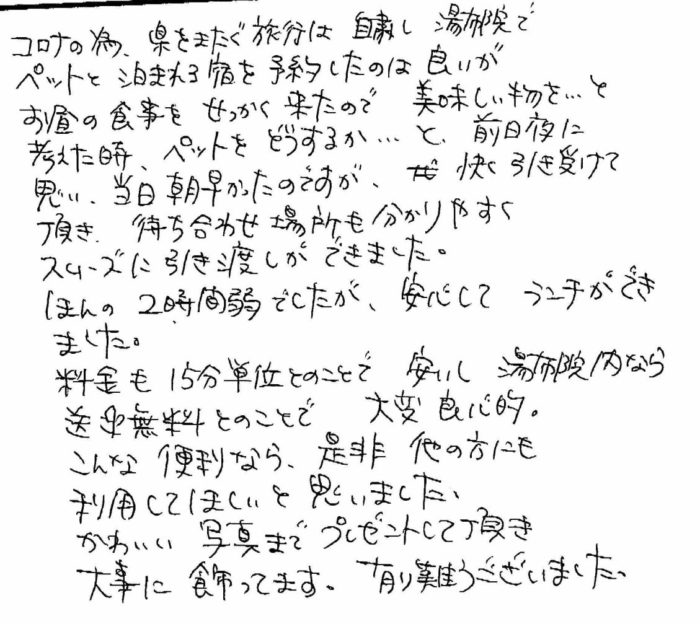 コロナの為、県をまたぐ旅行は 自粛し 湯布院で
ペットと 泊まれる宿を予約したのは 良いが
お昼の食事を せっかく来たので 美味しい物を…と
考えた時、ペットを どうするか…と、前日夜に
思い、当日朝早かったのですが、快く引き受けて
頂き、待ち合わせ場所も分かりやすく
スムーズに引き渡しができました。
ほんの 2時間弱でしたが、安心して ランチができ
ました。
料金も 15分単位とのことで 安いし 湯布院内なら
送迎無料とのことで 大変良心的。
こんな 便利なら、是非 他の方にも
利用してほしいと思いました、
かわいい 写真まで プレゼントして頂き
大事に 飾ってます。有り難うございました。